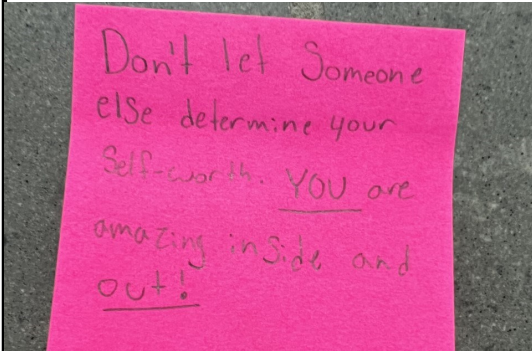 Don't let Someone
else determine your
Self-worth. YOU are
amazing inside and
out!